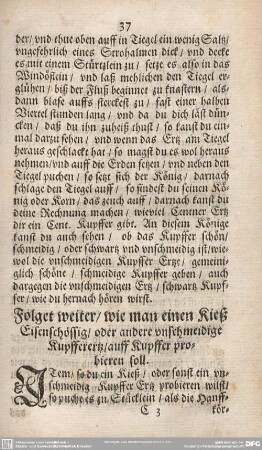 37
der/ vnd thue oben auff in Tiegel ein wenig Saltz/
vngefehrlich eines Strohalmen dick/ vnd decke
es mit einem Stürtzlein zu/ setze es also in das
Windöflein/ vnd laß mehlichen den Tiegel er-
glühen/ biß der Fluß beginnet zu knastern/ als-
dann blase auffs sterckest zu/ fast einer halben
Viertel stunden lang/ vnd da du dich läst dün-
cken/ daß du ihn zuheiß thust/ so kanst du ein-
mal darzu sehen/ vnd wenn das Ertz am Tiegel
heraus geschlackt hat/ so magst du es wol heraus
nehmen/ vnd auff die Erden setzen/ vnd neben den
Tiegel puchen/ so setzt sich der König/ darnach
schlage den Tiegel auff/ so findest du seinen Kö-
nig oder Korn/ das zeuch auff/ darnach kanst du
deine Rechnung machen/ wieviel Centner Ertz
dir ein Cent. Kupffer gibt. An diesem Könige
kanst du auch sehen/ ob das Kupffer schön/
schmeidig/ oder schwartz vnd vnschmeidig ist/wie-
wol die vnschmeidigen Kupffer Ertze/ gemein-
iglich schöne/ schmeidige Kupffer geben/ auch
dargegen die vnschmeidigen Ertz/ schwartz Kupf-
fer/ wie du hernach hören wirst.
Folget weiter/ wie man einen Kieß
Eisenschössig/ oder andere vnschmeidige
Kupfferertz/ auff Kupffer pro-
bieren soll.
ITem/ so du ein Kieß/ oder sonst ein vn-
schmeidig Kupffer Ertz probieren wilst/
so puche es zu Stücklein/ als die Hanff-
C 3 kör-